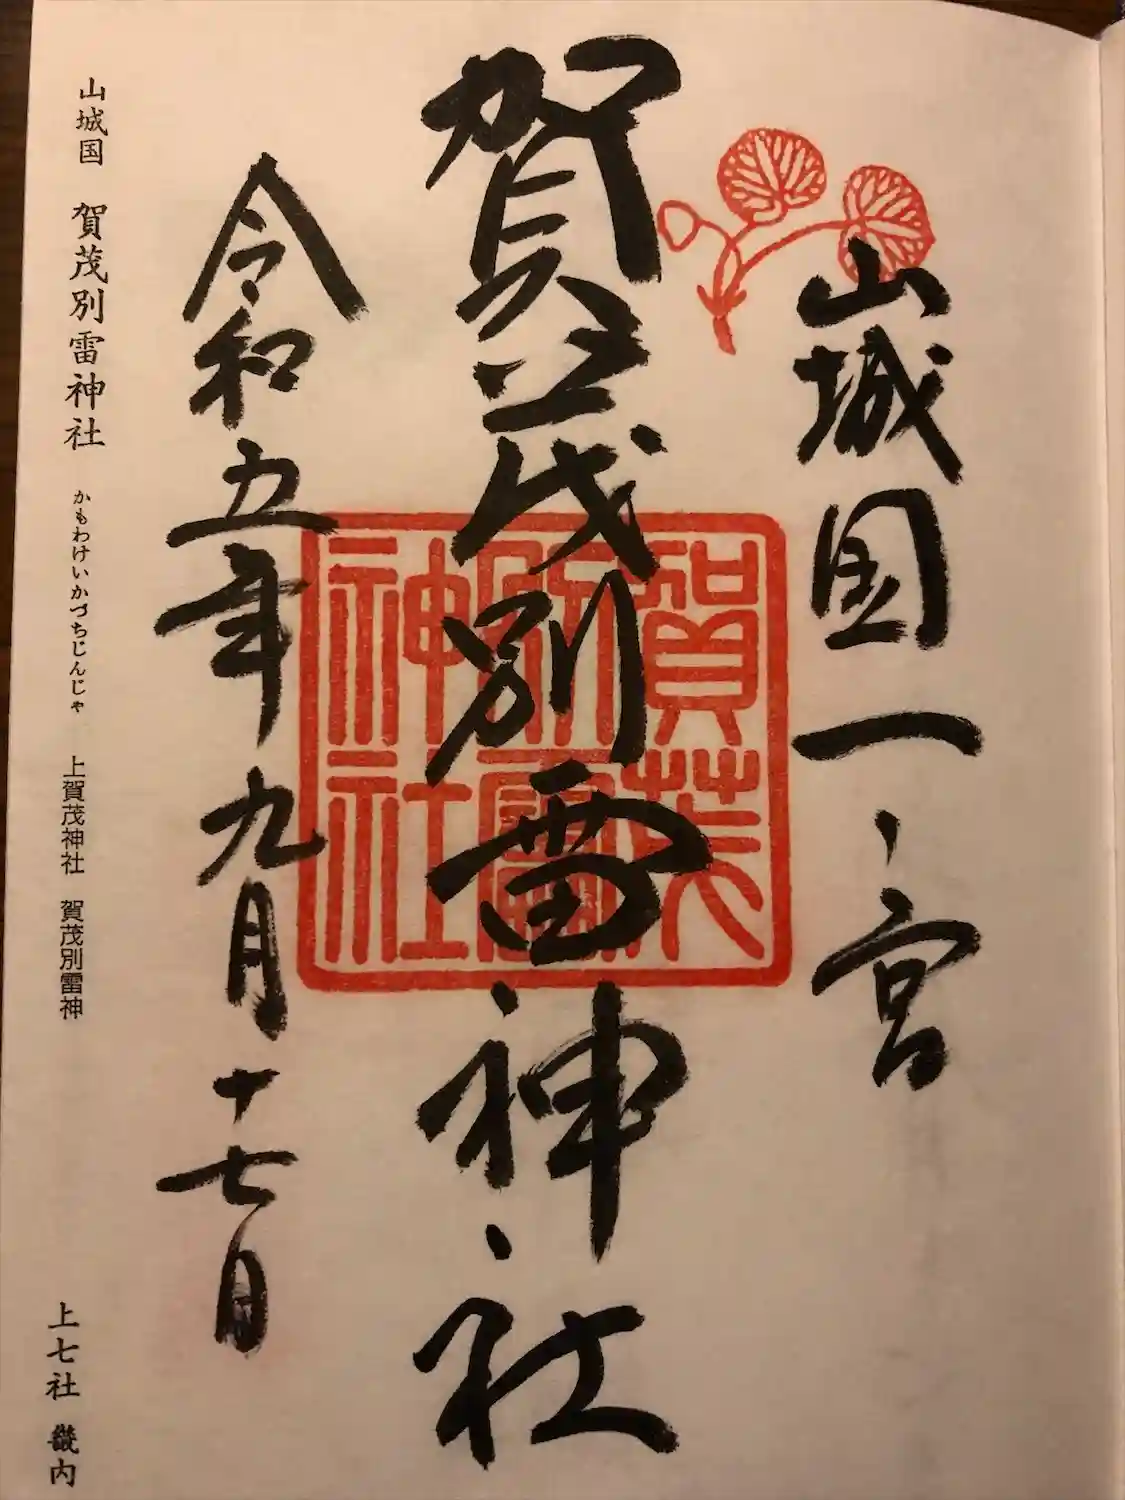 山城国一宮
賀茂別雷神社
令和五年九月十七日
山城国 賀茂別雷神社 かもわけいかづちじんじゃ 上賀茂神社 賀茂別雷神 上七社 畿内